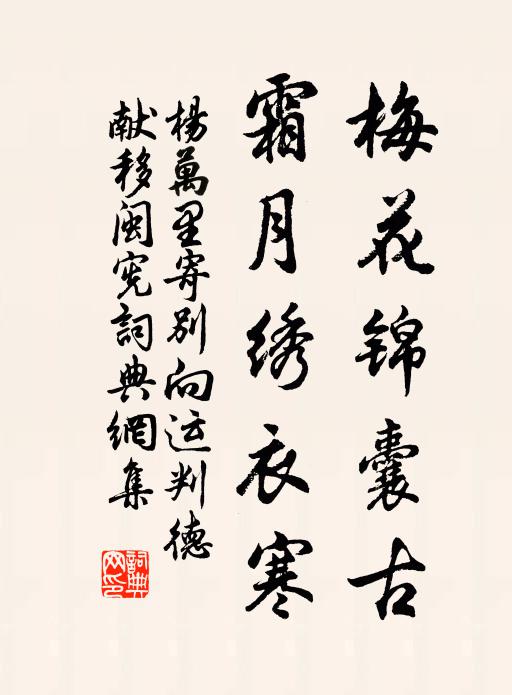 梅花锦囊古
霜月绣衣寒
楊萬里寄别向运判德
献移闽宪詞典網集
詞典網印